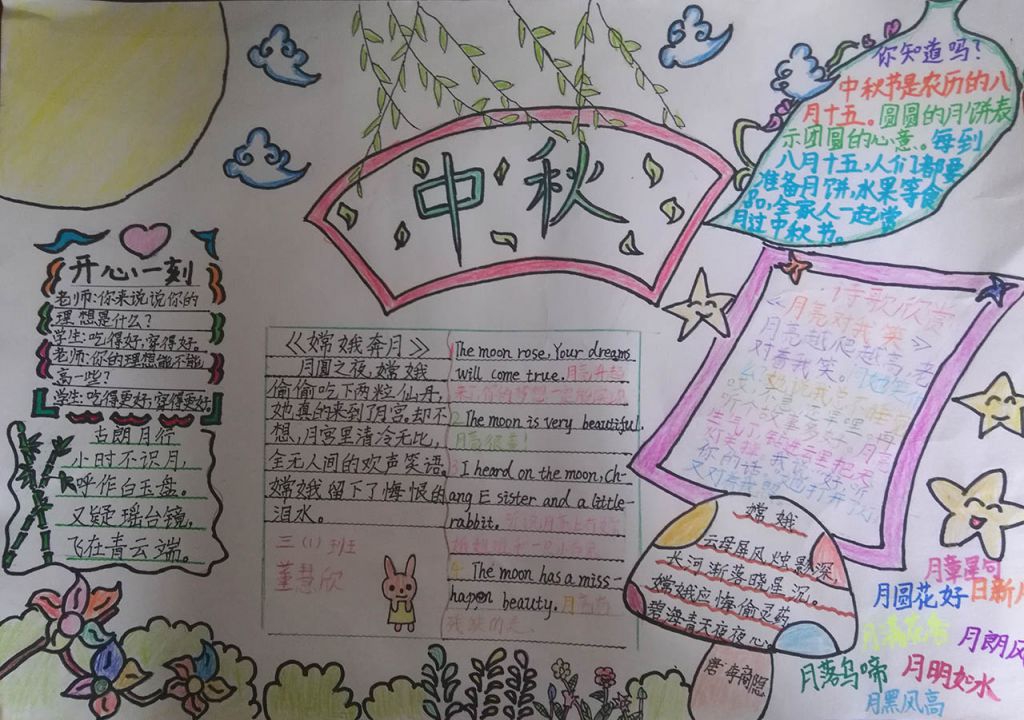 中秋
你知道吗?
中秋节是农历的八
月十五。圆圆的月饼表
示团圆的心意。每到
八月十五,人们都要
准备月饼,水果等食
品,全家人一起赏
月过中秋节。
开心一刻
老师:你来说说你的
理想是什么?
学生:吃得好,穿得好。
老师:你的理想能不能
高一些?
学生:吃得更好,穿得更好。
古朗月行
小时不识月,
呼作白玉盘。
又疑瑶台镜,
飞在青云端。
《嫦娥奔月》
月圆之夜,嫦娥
偷偷吃下两粒仙丹,
她真的来到了月宫,却不
想,月宫里清冷无比,
全无人间的欢声笑语。
嫦娥留下了悔恨的
泪水。
三(1)班
董慧欣
1 The moon rose, Your dreams
will come true. 月亮升起
来了,你的梦想一定能实现
2 The moon is very beautiful.
月亮很美!
3 I heard on the moon, Ch-
ang E sister and a little
rabbit.
4 The moon has a miss-
hapen beauty. 月亮有
残缺的美
《月亮对我笑》
月亮越爬越高,老
对着我笑。
嫦娥
云母屏风烛影深,
长河渐落晓星沉。
嫦娥应悔偷灵药
碧海青天夜夜心
唐·李商隐
月圆花好
月朗风
月落乌啼
月明如水
月黑风高